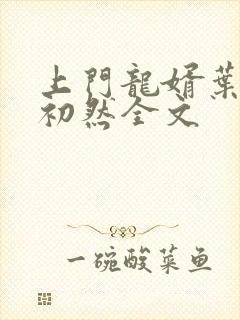 上門龍婿葉
初然全文
一碗酸菜鱼